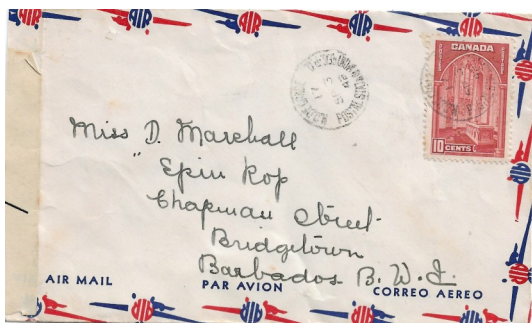 AIR AIR AIR AIR
CANADA
10 CENTS
Miss D. Marshall
Spin Kop
Chapman Street
Bridgetown
Barbados B. W. I.
AIR MAIL PAR AVION CORREO AEREO
AIR AIR AIR